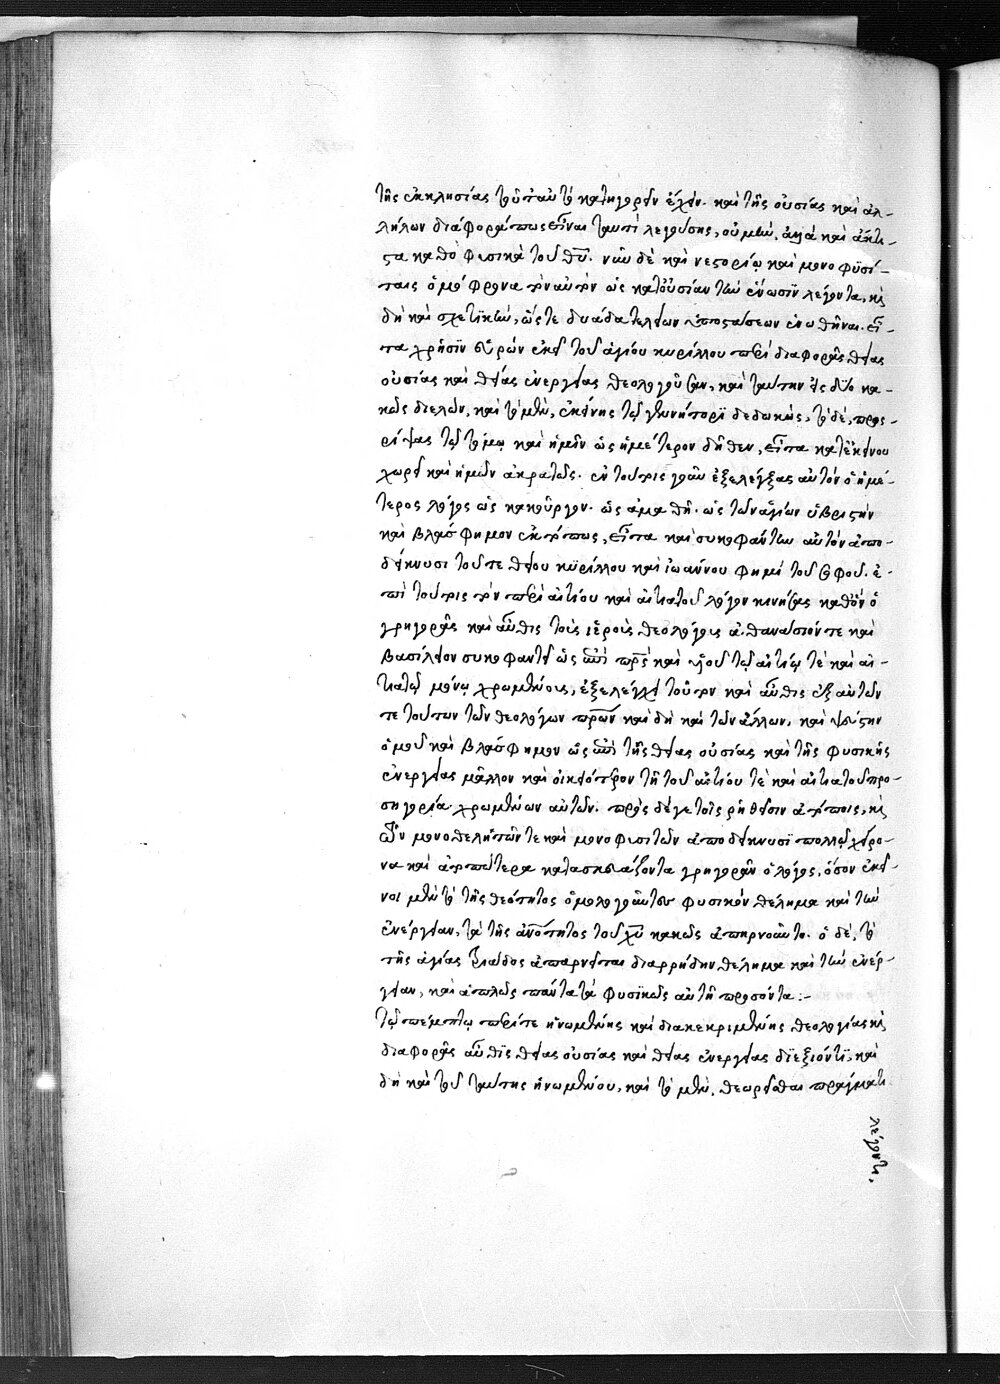 τῆς ἐκκλησίας τοῦτ' αὐτὸ κατηγορεῖν ἔχειν. καὶ τῆς οὐσίας καὶ ἀλ-
λήλων διάφορά πως εἶναι ταυτὶ λεγούσης, οὐ μὴν, ἀλλὰ καὶ ἄκτι-
στα καθὸ φυσικὰ τοῦ θῦ. νῦν δὲ καὶ νεστορίῳ καὶ μονοφυσί-
ταις ὁμόφρονα τὸν αὐτὸν ὡς κατ' οὐσίαν τὴν ἕνωσιν λέγοντα, καὶ
δὴ καὶ σχετικὴν, ὥστε δυάδα τελείων ὑποστάσεων ἑνωθῆναι. εἶ-
τα χρῆσιν εὑρὼν ἐκεῖ τοῦ ἁγίου κυρίλλου περὶ διαφορᾶς θείας
οὐσίας καὶ θείας ἐνεργείας θεολογοῦσαν, καὶ ταύτην εἰς δύο κα-
κῶς διελὼν, καὶ τὸ μὲν, ἐκείνης τῷ γεννήτορι δεδωκὼς, τὸ δὲ, προσ-
ρίψας τῷ τόμῳ καὶ ἡμῖν ὡς ἡμέτερον δῆθεν, εἶτα κατ' ἐκείνου
χωρεῖ καὶ ἡμῶν ἀκρατῶς. ἐν τούτοις γοῦν ἐξελέγξας αὐτὸν ὁ ἡμέ-
τερος λόγος ὡς κακοῦργον. ὡς ἀμαθῆ. ὡς τῶν ἁγίων ὑβριστὴν
καὶ βλάσφημον ἐκτόπως, εἶτα καὶ συκοφάντην αὐτὸν ἀπο-
δείκνυσι τοῦ τε θείου κυρίλλου καὶ ἰωάννου φημὶ τοῦ σοφοῦ. ἐ-
πὶ τούτοις τὸν περὶ αἰτίου καὶ αἰτιατοῦ λόγον κινήσας καθ' ὃν ὁ
γρηγορᾶς καὶ αὖθις τοὺς ἱεροὺς θεολόγους ἀθανάσιόν τε καὶ
βασίλειον συκοφαντεῖ ὡς ἐπὶ πρς καὶ υἱοῦ τῷ αἰτίῳ τὲ καὶ αἰ-
τιατῷ μόνῳ χρωμένους, ἐξελέγχει τοῦτον καὶ αὖθις ἐξ αὐτῶν
τε τούτων τῶν θεολόγων πρων καὶ δὴ καὶ τῶν ἄλλων, καὶ ψεύστην
ὁμοῦ καὶ βλάσφημον ὡς ἐπὶ τῆς θείας οὐσίας καὶ τῆς φυσικῆς
ἐνεργείας μᾶλλον καὶ οἰκειότερον τῇ τοῦ αἰτίου τὲ καὶ αἰτιατοῦ προ-
σηγορίᾳ χρωμένων αὐτῶν. πρὸς δέ γε τοῖς ῥηθεῖσιν ἀτόποις, καὶ
τῶν μονοθελητῶν τε καὶ μονοφυσιτῶν ἀποδείκνυσι πολλῷ χείρο-
να καὶ ἀτοπώτερα κατασκευάζοντα γρηγορᾶν ὁ λόγος, ὅσον ἐκεῖ-
νοι μὲν τὸ τῆς θεότητος ὁμολογοῦντες φυσικὸν θέλημα καὶ τὴν
ἐνέργειαν, τὰ τῆς ἀνότητος τοῦ χῦ κακῶς ἀπηρνοῦντο. ὁ δὲ, τὸ
τῆς ἁγίας τριάδος ἀπαρνεῖται διαρρήδην θέλημα καὶ τὴν ἐνέρ-
γειαν, καὶ ἁπλῶς πάντα τὰ φυσικῶς αὐτῇ προσόντα :-
τῷ πέμπτῳ περί τε ἡνωμένης καὶ διακεκριμένης θεολογίας καὶ
διαφορᾶς αὖθις θείας οὐσίας καὶ θείας ἐνεργείας διεξιόντι, καὶ
δὴ καὶ τοῦ ταύτης ἡνωμένου, καὶ τὸ μὲν, θεωρεῖσθαι πράγματι
λέγοντι,